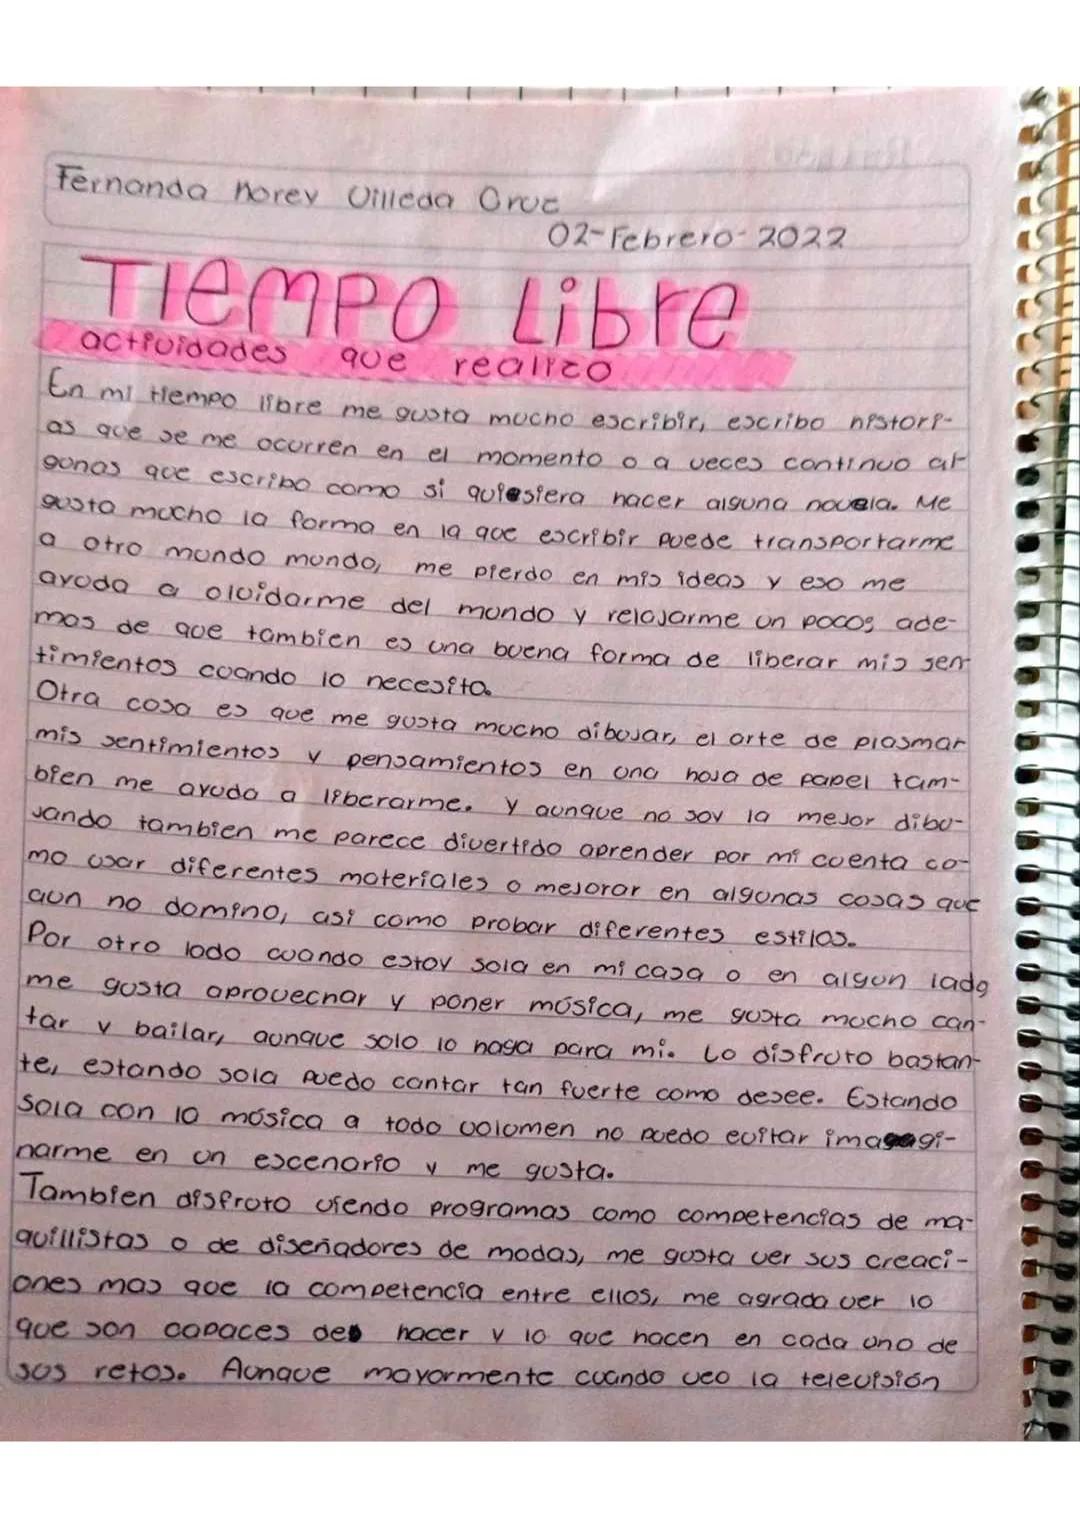 Fernanda Norey Villeda Cruz
02-Febrero-2022
Tiempo Libre
actividades que realizo
En mi tiempo libre me gusta mucho escribir, escribo histori-
as que se me ocurren en el momento o a veces continuo al-
gunas que escribo como si quisiera hacer alguna novela. Me
gusta mucho la forma en la que escribir puede transportarme
a otro mundo mundo, me pierdo en mis ideas y eso me
ayuda a olvidarme del mundo y relajarme un poco, ade-
mas de que tambien es una buena forma de liberar mis sen-
timientos cuando lo necesito.
Otra cosa es que me gusta mucho dibujar, el arte de plasmar
mis sentimientos y pensamientos en una hoja de papel tam-
bien me ayuda a liberarme. Y aunque no soy la mejor dibu-
jando tambien me parece divertido aprender por mi cuenta co-
mo usar diferentes materiales o mejorar en algunas cosas que
aun no domino, asi como probar diferentes estilos.
Por otro lado cuando estoy sola en mi casa o en algun lado
me gusta aprovechar y poner música, me gusta mucho can-
tar y bailar, aunque solo lo haga para mi. Lo disfruto bastan-
te, estando sola puedo cantar tan fuerte como desee. Estando
sola con la música a todo volumen no puedo evitar imagi-
narme en un escenario y me gusta.
Tambien disfruto viendo programas como competencias de ma-
quillistas o de diseñadores de modas, me gusta ver sus creaci-
ones mas que la competencia entre ellos, me agrada ver lo
que son capaces de hacer y lo que hacen en cada uno de
sus retos. Aunque mayormente cuando veo la televisión